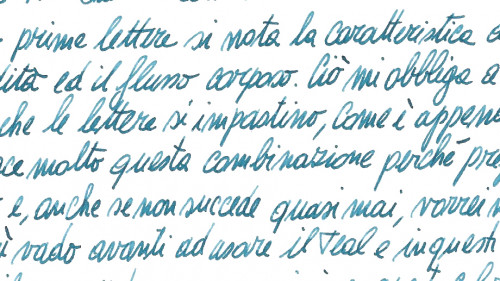 prime lettere si nota la caratteristica
ed il flusso corposo. Ciò mi obbliga a
che le lettere si impastino, come è
molto questa combinazione perchè
e, anche se non succede quasi mai, vorrei
vado avanti ad usare il Teal e in questi